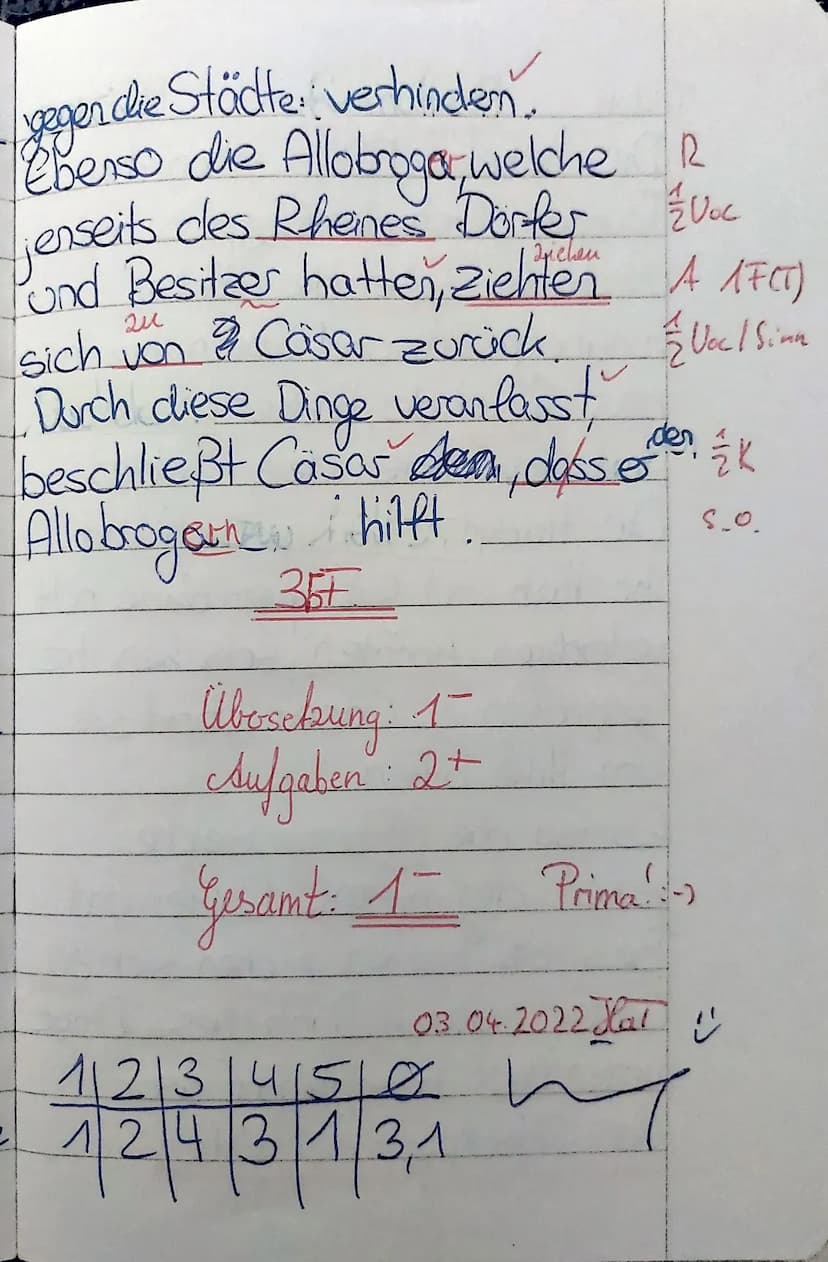 gegen die Städte verhindern.
Ebenso die Allobroger, welche R
jenseits des Rheines Dörfer ½ Voc
ziehen
und Besitzer hatten, ziehten A 1F(T)
zu
sich von Cäsar zurück. ½ Voc/Sinn
Durch diese Dinge veranlasst,
beschließt Cäsar, dass er den ½ K
Allobrogern hilft. s.o.
3½F
Übersetzung: 1-
Aufgaben: 2+
Gesamt: 1- Prima! :-)
03.04.2022
1 2 3 4 5 Ø
1 2 4 3 1 3,1